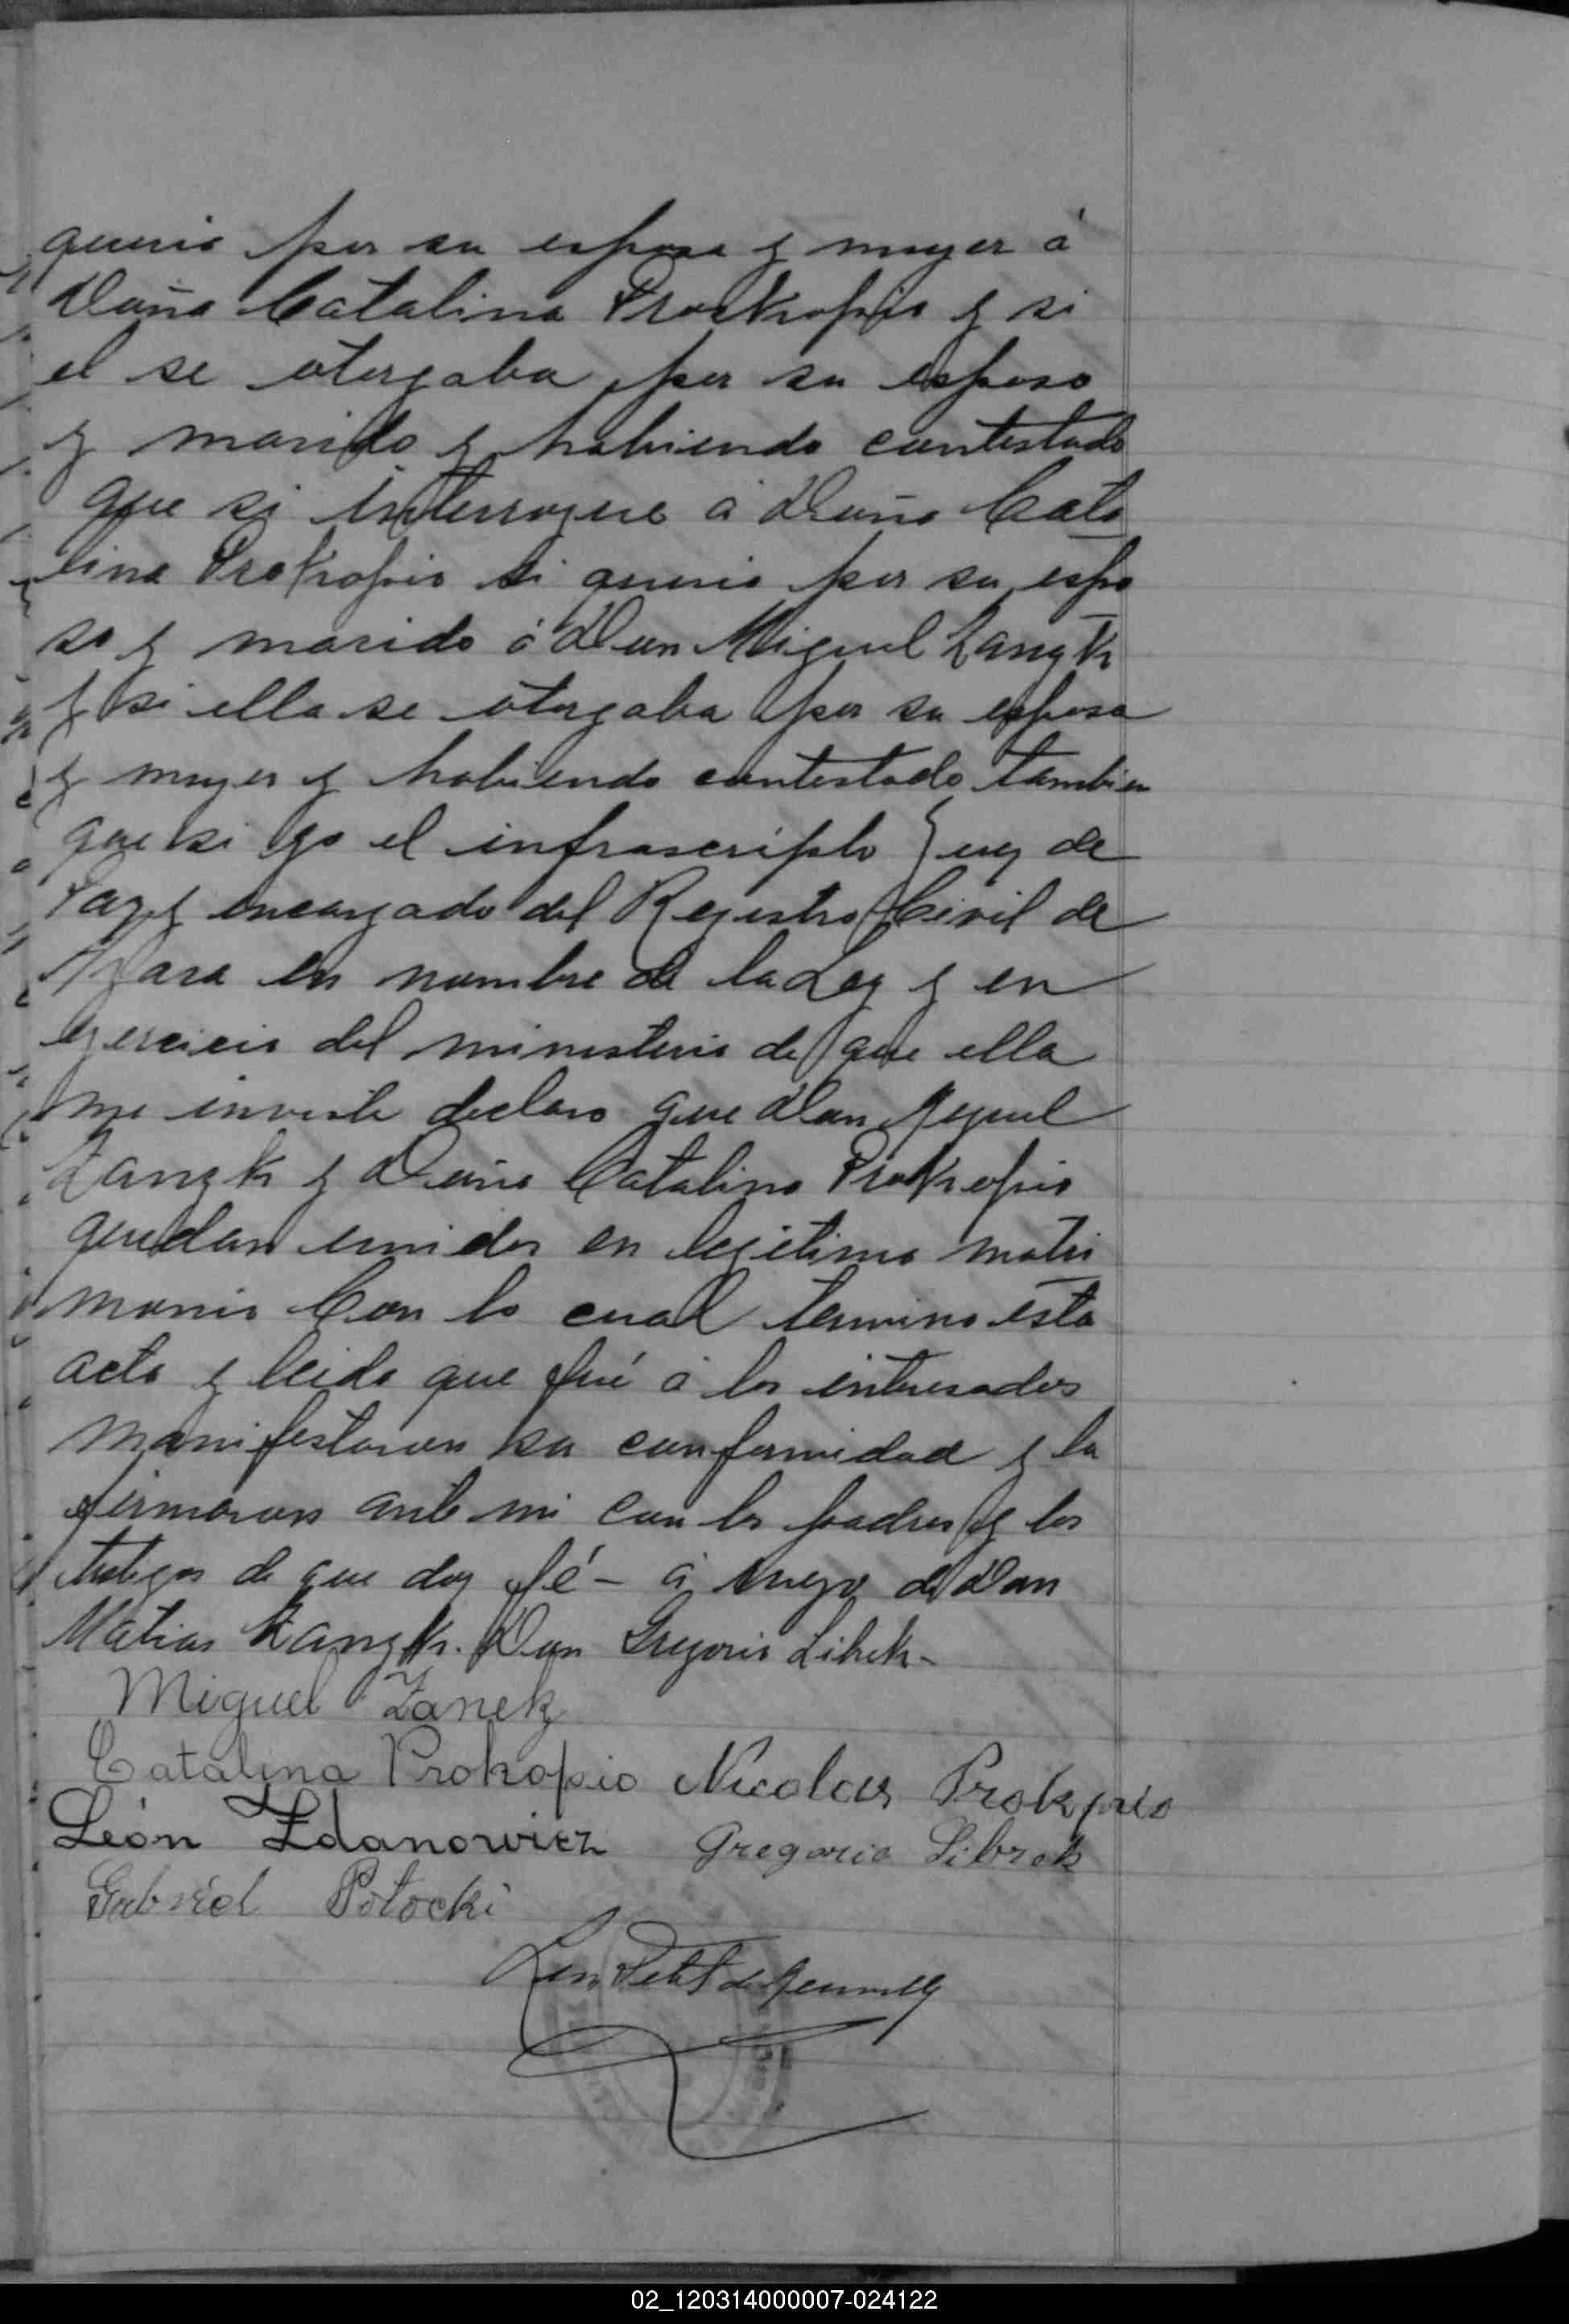 queria por su esposa y muger á
Doña Catalina Prockopio y si
el se otorgaba por su esposo
y marido y habiendo contestado
que si interrogue á Doña Cata
lina Prokopio si queria por su espo
so y marido á Don Miguel Zangk
y si ella se otorgaba por su esposa
y muger y habiendo contestado tambien
que si yo el infrascripto Juez de
Paz y encargado del Registro Civil de
Azara en nombre de la Ley y en
ejercicio del ministerio de que ella
me inviste declaro que Don Miguel
Zangk y Doña Catalina Prokopio
quedan unidos en legitimo matri
monio Con lo cual termino esta
acta y leida que fué á los interesados
manifestaron su conformidad y la
firmaron ante mi con los padres y los
testigos de que doy fé - á ruego de Don
Matias Zangk. Don Gregorio Librek-
Miguel Zanek
Catalina Prokopio Nicolas Prokopio
León Zdanowicz Gregorio Librek
Gabriel Potocki
Leon Petit de
02_120314000007-024122